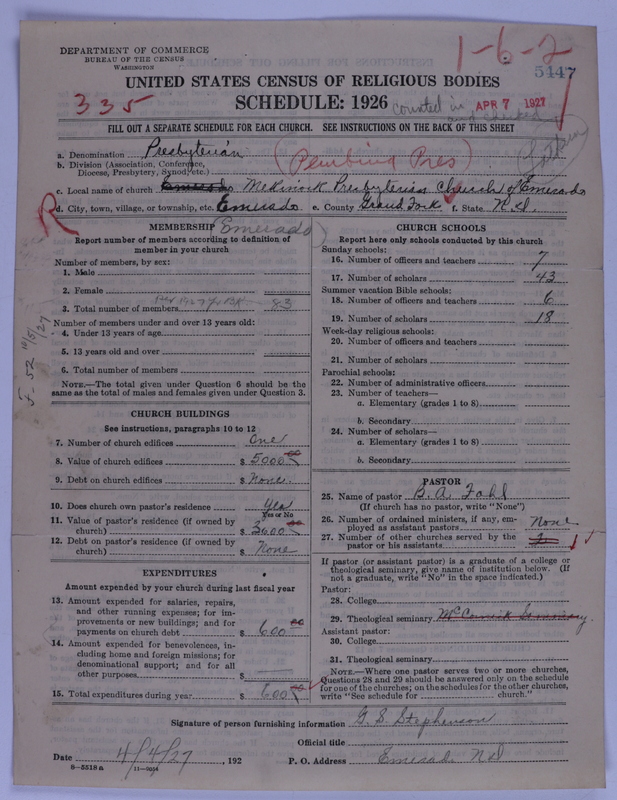 DEPARTMENT OF COMMERCE
BUREAU OF THE CENSUS
WASHINGTON
1-6-2
5447
UNITED STATES CENSUS OF RELIGIOUS BODIES
335
SCHEDULE: 1926
counted in
APR 7 1927
and checked
FILL OUT A SEPARATE SCHEDULE FOR EACH CHURCH. SEE INSTRUCTIONS ON THE BACK OF THIS SHEET
a. Denomination Presbyterian
(Pembina Pres)
b. Division (Association, Conference, Diocese, Presbytery, Synod, etc.)
c. Local name of church Emerado Mekinock Presbyterian Church of Emerado
R
d. City, town, village, or township, etc. Emerado e. County Grand Fork f. State N.d.
MEMBERSHIP
Emerado)
Report number of members according to definition of member in your church
Number of members, by sex:
1. Male
2. Female
3. Total number of members 83
Number of members under and over 13 years old:
4. Under 13 years of age
5. 13 years old and over
6. Total number of members
NOTE.—The total given under Question 6 should be the same as the total of males and females given under Question 3.
J-52 10/51/27
CHURCH BUILDINGS
See instructions, paragraphs 10 to 12
7. Number of church edifices One
8. Value of church edifices $ 5000 00
9. Debt on church edifices $ None.
10. Does church own pastor's residence Yes
Yes or No
11. Value of pastor's residence (if owned by church) $ 3600 00
12. Debt on pastor's residence (if owned by church) $ None
EXPENDITURES
Amount expended by your church during last fiscal year
13. Amount expended for salaries, repairs, and other running expenses; for improvements or new buildings; and for payments on church debt $ 600 00
14. Amount expended for benevolences, including home and foreign missions; for denominational support; and for all other purposes $
15. Total expenditures during year $ 600 00
CHURCH SCHOOLS
Report here only schools conducted by this church
Sunday schools:
16. Number of officers and teachers 7
17. Number of scholars 43
Summer vacation Bible schools:
18. Number of officers and teachers 6
19. Number of scholars 18
Week-day religious schools:
20. Number of officers and teachers
21. Number of scholars
Parochial schools:
22. Number of administrative officers
23. Number of teachers—
a. Elementary (grades 1 to 8)
b. Secondary
24. Number of scholars—
a. Elementary (grades 1 to 8)
b. Secondary
PASTOR
25. Name of pastor B. A. Fahl
(If church has no pastor, write "None")
26. Number of ordained ministers, if any, employed as assistant pastors None
27. Number of other churches served by the pastor or his assistants
If pastor (or assistant pastor) is a graduate of a college or theological seminary, give name of institution below. (If not a graduate, write "No" in the space indicated.)
Pastor:
28. College
29. Theological seminary McCormick Seminary.
Assistant pastor:
30. College
31. Theological seminary
NOTE.—Where one pastor serves two or more churches, Questions 28 and 29 should be answered only on the schedule for one of the churches; on the schedules for the other churches, write "See schedule for church."
Signature of person furnishing information G. S. Stephenson
Official title
Date 4/4/27, 192
P. O. Address Emerado N.d
8—5518a 11—9094